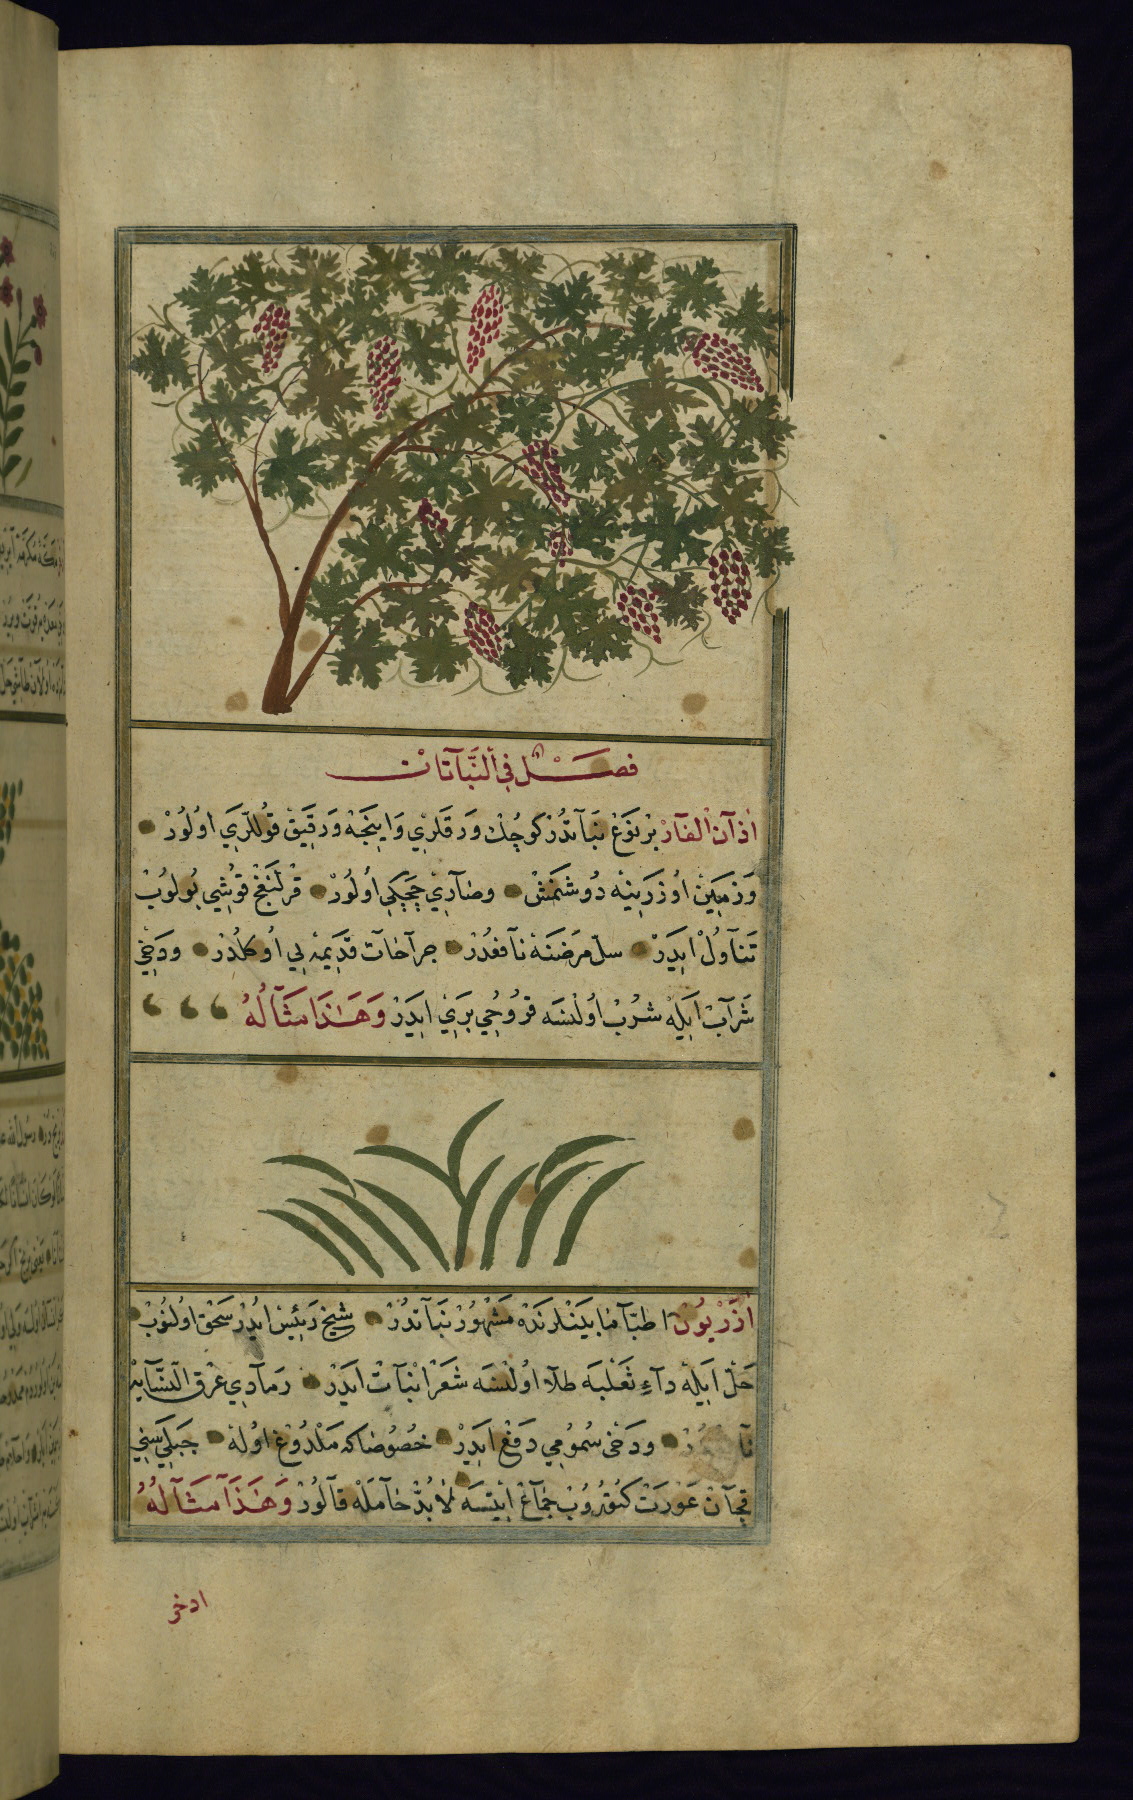 فصل في النباتات
اذان الفار بر نوع نباتدر كوچك ورقلري وا ينجه ورقيق قوللري اولور
وزمين اوزرينه دوشنمش وصاري چچكي اولور قرلنغج قوشي بولوب
تناول ايدر سل مرضنه نافعدر جراحات قديمه يي اوكلدر ودخي
شراب ايله شرب اولنسه قروحي بري ايدر وهذا مثاله
اذريون اطبا ما بينلرنده مشهور نباتدر شيخ رئيس ايدر سحق اولنوب
خل ايله داء ثعلبه طلا اولنسه شعر انبات ايدر رمادي عرق النسايه
ودخي سمومي دفع ايدر خصوصا كه ملدوغ اوله
قچان عورت كتوروب جماع ايتسه لابد حامله قالور وهذا مثاله
ادخر